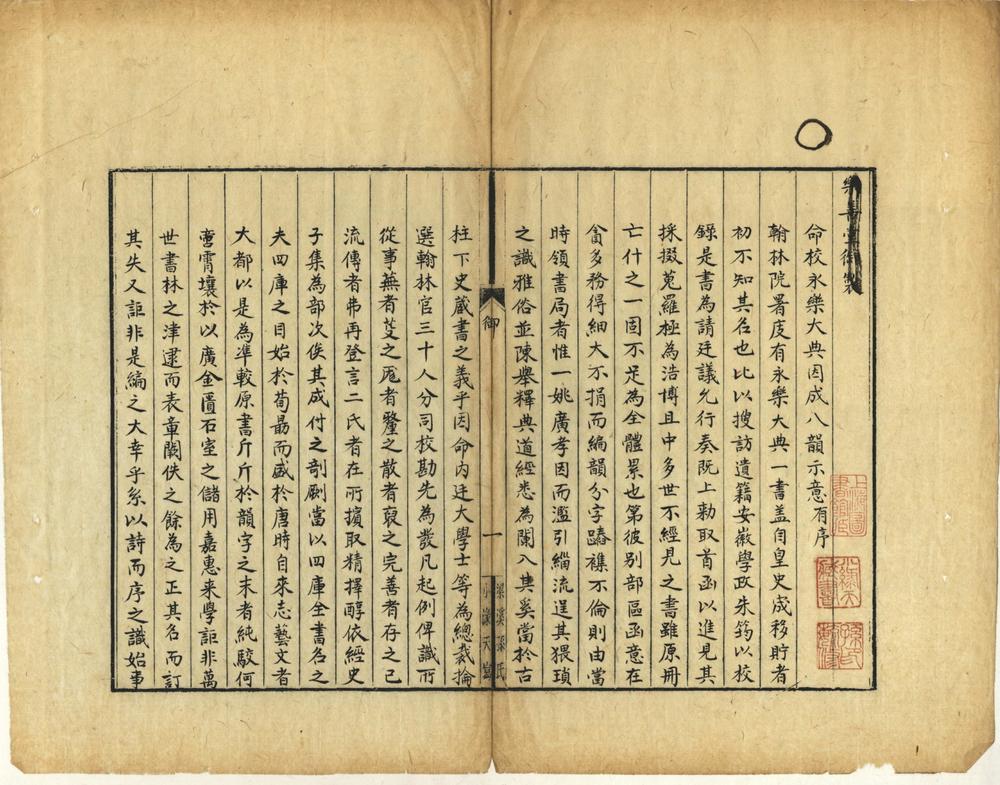 樂善堂御製
命校永樂大典因成八韻示意有序
翰林院署庋有永樂大典一書盖自皇史宬移貯者
初不知其名也比以搜訪遺籍安徽學政朱筠以校
錄是書為請廷議允行奏既上勅取首函以進見其
採掇蒐羅極為浩博且中多世不經見之書雖原冊
亡什之一固不足為全體累也第彼別部區函意在
貪多務得細大不捐而編韻分字踳襍不倫則由當
時領書局者惟一姚廣孝因而濫引緇流逞其猥瑣
之識雅俗並陳舉釋典道經悉為闌入其奚當於古
御
一
梁溪孫氏
小淥天鈔
柱下史藏書之義乎因命内廷大學士等為總裁掄
選翰林官三十人分司校勘先為發凡起例俾識所
從事蕪者芟之厖者釐之散者裒之完善者存之已
流傳者弗再登言二氏者在所擯取精擇醇依經史
子集為部次俟其成付之剞劂當以四庫全書名之
夫四庫之目始於荀勗而盛於唐時自來志藝文者
大都以是為準較原書斤斤於韻字之末者純駮何
啻霄壤於以廣金匱石室之儲用嘉惠来學詎非萬
世書林之津逮而表章闕佚之餘為之正其名而訂
其失又詎非是編之大幸乎系以詩而序之識始事
上海圖書館藏
小淥天藏書
孫氏